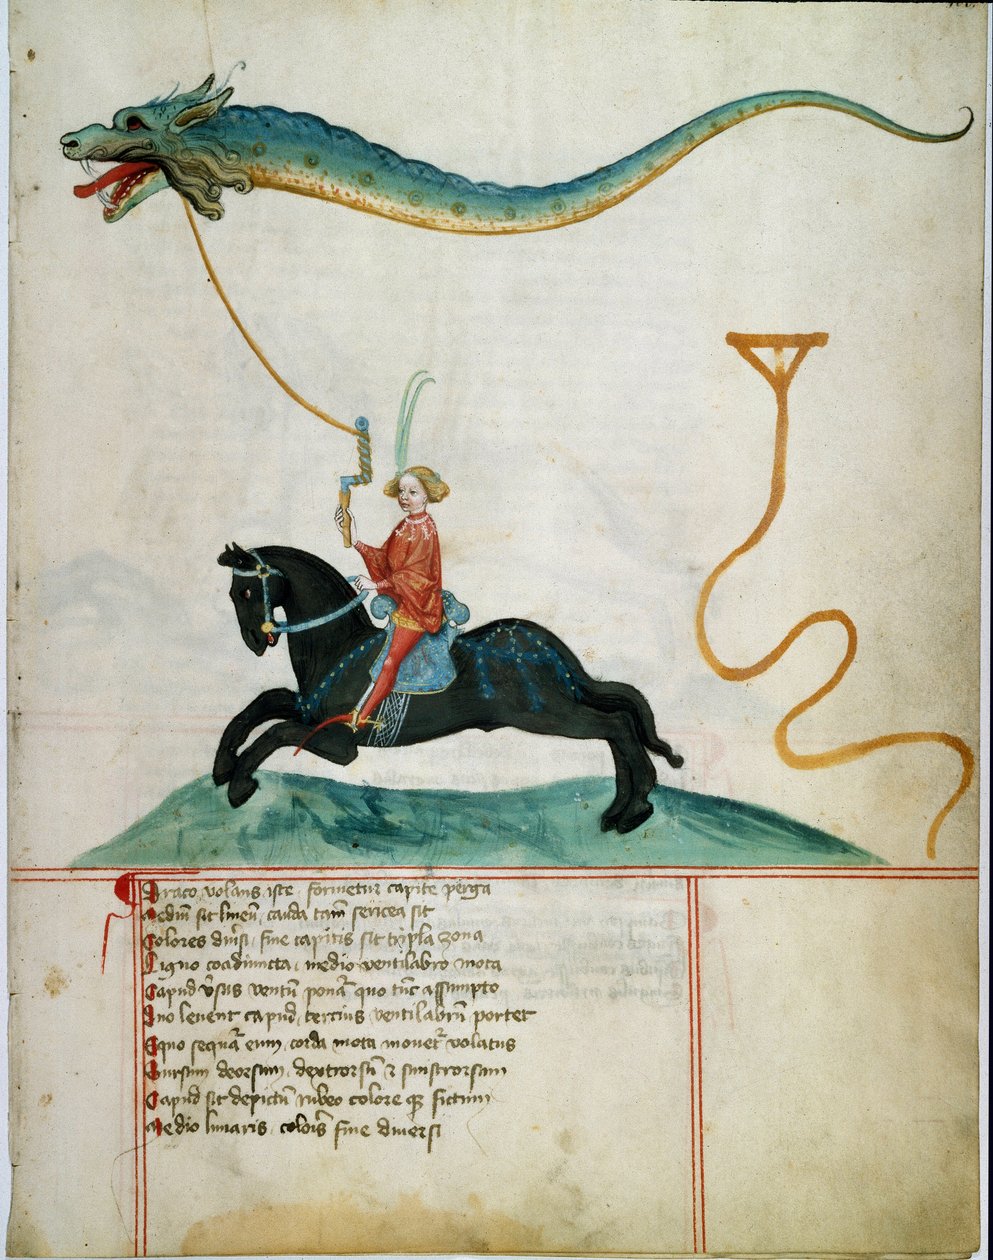 Draco volans iste formetur capite perga
Mediū sit lineū cauda tam̄ sericea sit
Colores diūsi fine capitis sit tripla zona
Ligno coadiuncta medio ventilabro mota
Capud v̄sus ventū ponat̄ quo tūc assumpto
Duo levent capud tercius ventilabrū portet
Equo sequat̄ eum corda mota movet̄ volatus
Sursum deorsum dextrorsū & sinistrorsum
Capud sit depictū rubeo colore fictum
Medio lunaris coloris fine diversi